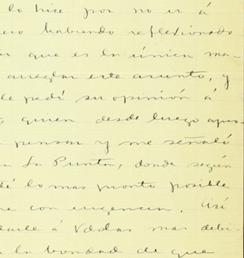 lo hice por no ir á
habiendo reflexionado
que es la única ma-
arreglar este asunto, y
le pedí su opinión á
quien desde luego apro-
pensar y me señaló
La Punta, donde según
lo mas pronto posible
con urgencia. Así
á Valdés mas
la bondad de que